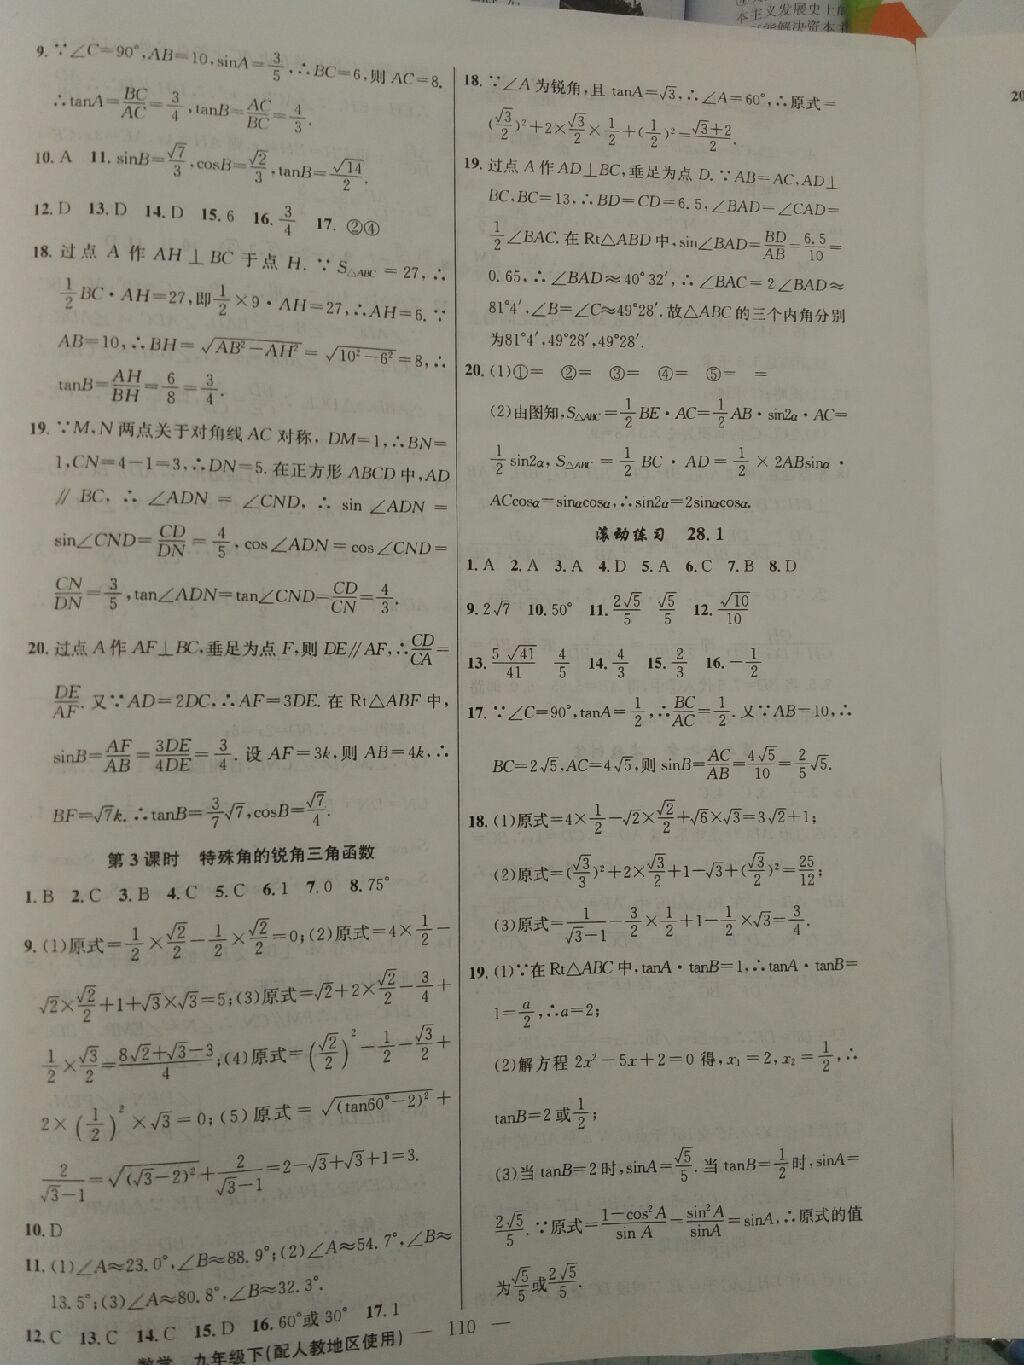 9. ∵∠C=90°,AB=10,sinA=3/5,∴BC=6,则 AC=8.
∴tanA=BC/AC=3/4,tanB=AC/BC=4/3.
10. A 11. sinB=√7/3,cosB=√2/3,tanB=√14/2.
12. D 13. D 14. D 15. 6 16. 3/4 17. ②④
18. 过点 A 作 AH⊥BC 于点 H. ∵S△ABC=27,∴
1/2BC·AH=27,即1/2×9·AH=27,∴AH=6. ∵
AB=10,∴BH=√(AB²−AH²)=√(10²−6²)=8,∴
tanB=AH/BH=6/8=3/4.
19. ∵M,N 两点关于对角线 AC 对称, DM=1,∴BN=
1,CN=4−1=3,∴DN=5. 在正方形 ABCD 中,AD
∥BC, ∴∠ADN=∠CND, ∴sin∠ADN=
sin∠CND=CD/DN=4/5,cos∠ADN=cos∠CND=
CN/DN=3/5,tan∠ADN=tan∠CND=CD/CN=4/3.
20. 过点 A 作 AF⊥BC,垂足为点 F,则 DE∥AF,∴CD/CA=
DE/AF. 又∵AD=2DC,∴AF=3DE. 在 Rt△ABF 中,
sinB=AF/AB=3DE/4DE=3/4. 设 AF=3k,则 AB=4k,∴
BF=√7k. ∴tanB=3/7√7,cosB=√7/4.
第 3 课时 特殊角的锐角三角函数
1. B 2. C 3. B 4. C 5. C 6. 1 7. 0 8. 75°
9. (1)原式=1/2×√2/2−1/2×√2/2=0;(2)原式=4×1/2−
√2×√2/2+1+√3×√3=5;(3)原式=√2+2×√2/2−3/4+
1/2×√3/2=(8√2+√3−3)/4;(4)原式=(√2/2)²−1/2−√3/2+
2×(1/2)²×√3=0;(5)原式=√((tan60°−2)²)+
2/(√3−1)=√((√3−2)²)+2/(√3−1)=2−√3+√3+1=3.
10. D
11. (1)∠A≈23.0°,∠B≈88.9°;(2)∠A≈54.7°,∠B≈
13.5°;(3)∠A≈80.8°,∠B≈32.3°.
12. C 13. C 14. C 15. D 16. 60°或 30° 17. 1
18. ∵∠A 为锐角,且 tanA=√3,∴∠A=60°,∴原式=
(√3/2)²+2×√3/2×1/2+(1/2)²=(√3+2)/2.
19. 过点 A 作 AD⊥BC,垂足为点 D. ∵AB=AC,AD⊥
BC,BC=13,∴BD=CD=6.5,∠BAD=∠CAD=
1/2∠BAC. 在 Rt△ABD 中,sin∠BAD=BD/AB=6.5/10=
0.65,∴∠BAD≈40°32′,∴∠BAC=2∠BAD≈
81°4′,∠B=∠C≈49°28′. 故△ABC 的三个内角分别
为81°4′,49°28′,49°28′.
20. (1)①= ②= ③= ④= ⑤= =
(2)由图知,S△ABC=1/2BE·AC=1/2AB·sin2α·AC=
1/2sin2α,S△ABC=1/2BC·AD=1/2×2ABsinα·
ACcosα=sinαcosα,∴sin2α=2sinαcosα.
滚动练习 28.1
1. A 2. A 3. A 4. D 5. A 6. C 7. B 8. D
9. 2√7 10. 50° 11. 2√5/5 √5/5 12. √10/10
13. 5√41/41 4/5 14. 4/3 15. 2/3 16. −1/2
17. ∵∠C=90°,tanA=1/2,∴BC/AC=1/2. 又∵AB=10,∴
BC=2√5,AC=4√5,则 sinB=AC/AB=4√5/10=2/5√5.
18. (1)原式=4×1/2−√2×√2/2+√6×√3=3√2+1;
(2)原式=(√3/3)²+2×√3/2+1−√3+(√3/2)²=25/12;
(3)原式=1/(√3−1)−3/2×1/2+1−1/2×√3=3/4.
19. (1)∵在 Rt△ABC 中,tanA·tanB=1,∴tanA·tanB=
1=a/2,∴a=2;
(2)解方程 2x²−5x+2=0 得,x₁=2,x₂=1/2,∴
tanB=2 或1/2;
(3)当 tanB=2 时,sinA=√5/5. 当 tanB=1/2时,sinA=
2√5/5. ∵原式=(1−cos²A)/sin A=sin²A/sinA=sinA,∴原式的值
为√5/5或2√5/5.
数学 九年级下(配人教地区使用) — 110 —
20
本主义发展史上的